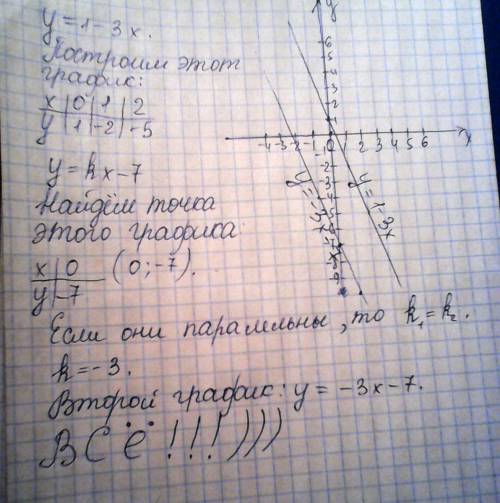 y = 1 - 3x.
Построим этот
график:
x | 0 | 1 | 2
y | 1 | -2 | -5
y = kx - 7
Найдём точка
этого графика
x | 0 (0; -7).
y | -7
Если они паралельны, то k₁ = k₂.
k = -3.
Второй график: y = -3x - 7.
ВСЁ!!!)))
y
6
5
4
3
2
1
-4 -3 -2 -1 0 1 2 3 4 5 6 x
-1
-2
-3
-4
-5
y = 1 - 3x